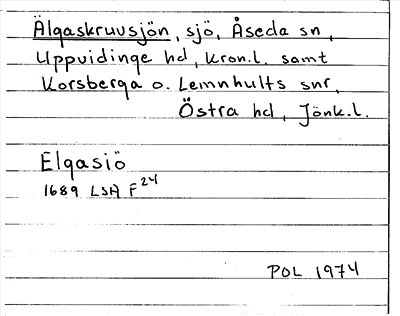 Älgaskruvsjön, sjö, Åseda sn,
Uppvidinge hd, Kron.l. samt
Korsberga o. Lemnhults snr,
Östra hd, Jönk.l.
Elgasiö
1689 LSA F24
POL 1974